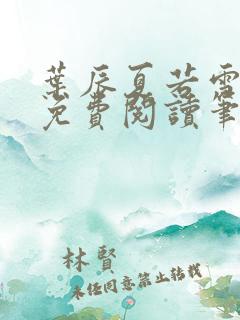 葉辰夏若雪
免費閱讀筆
林賢
未任同意禁止转载